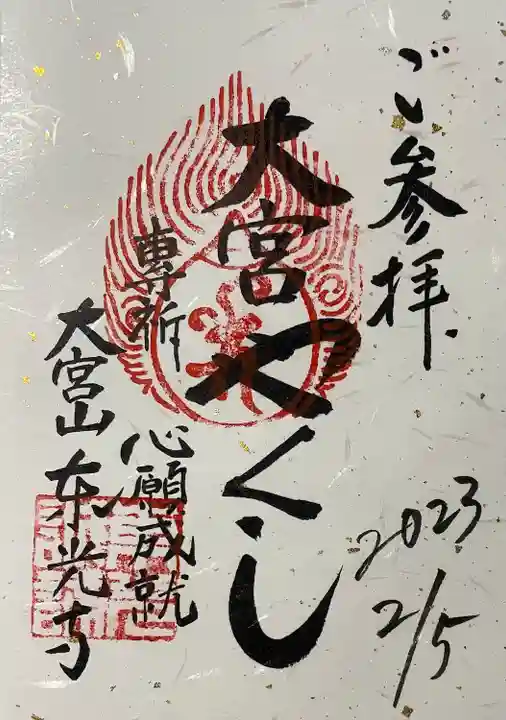 ご参拝
2023
2/5
大宮やくし
專祈
心願成就
大宮山東光寺